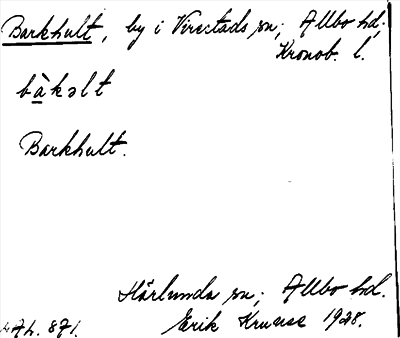 Barkhult, by i Virestads sn; Allbo hd,
Kronob. l.
bàkəlt
Barkhult.
Härlunda sn; Allbo hd.
Erik Kruuse 1928.